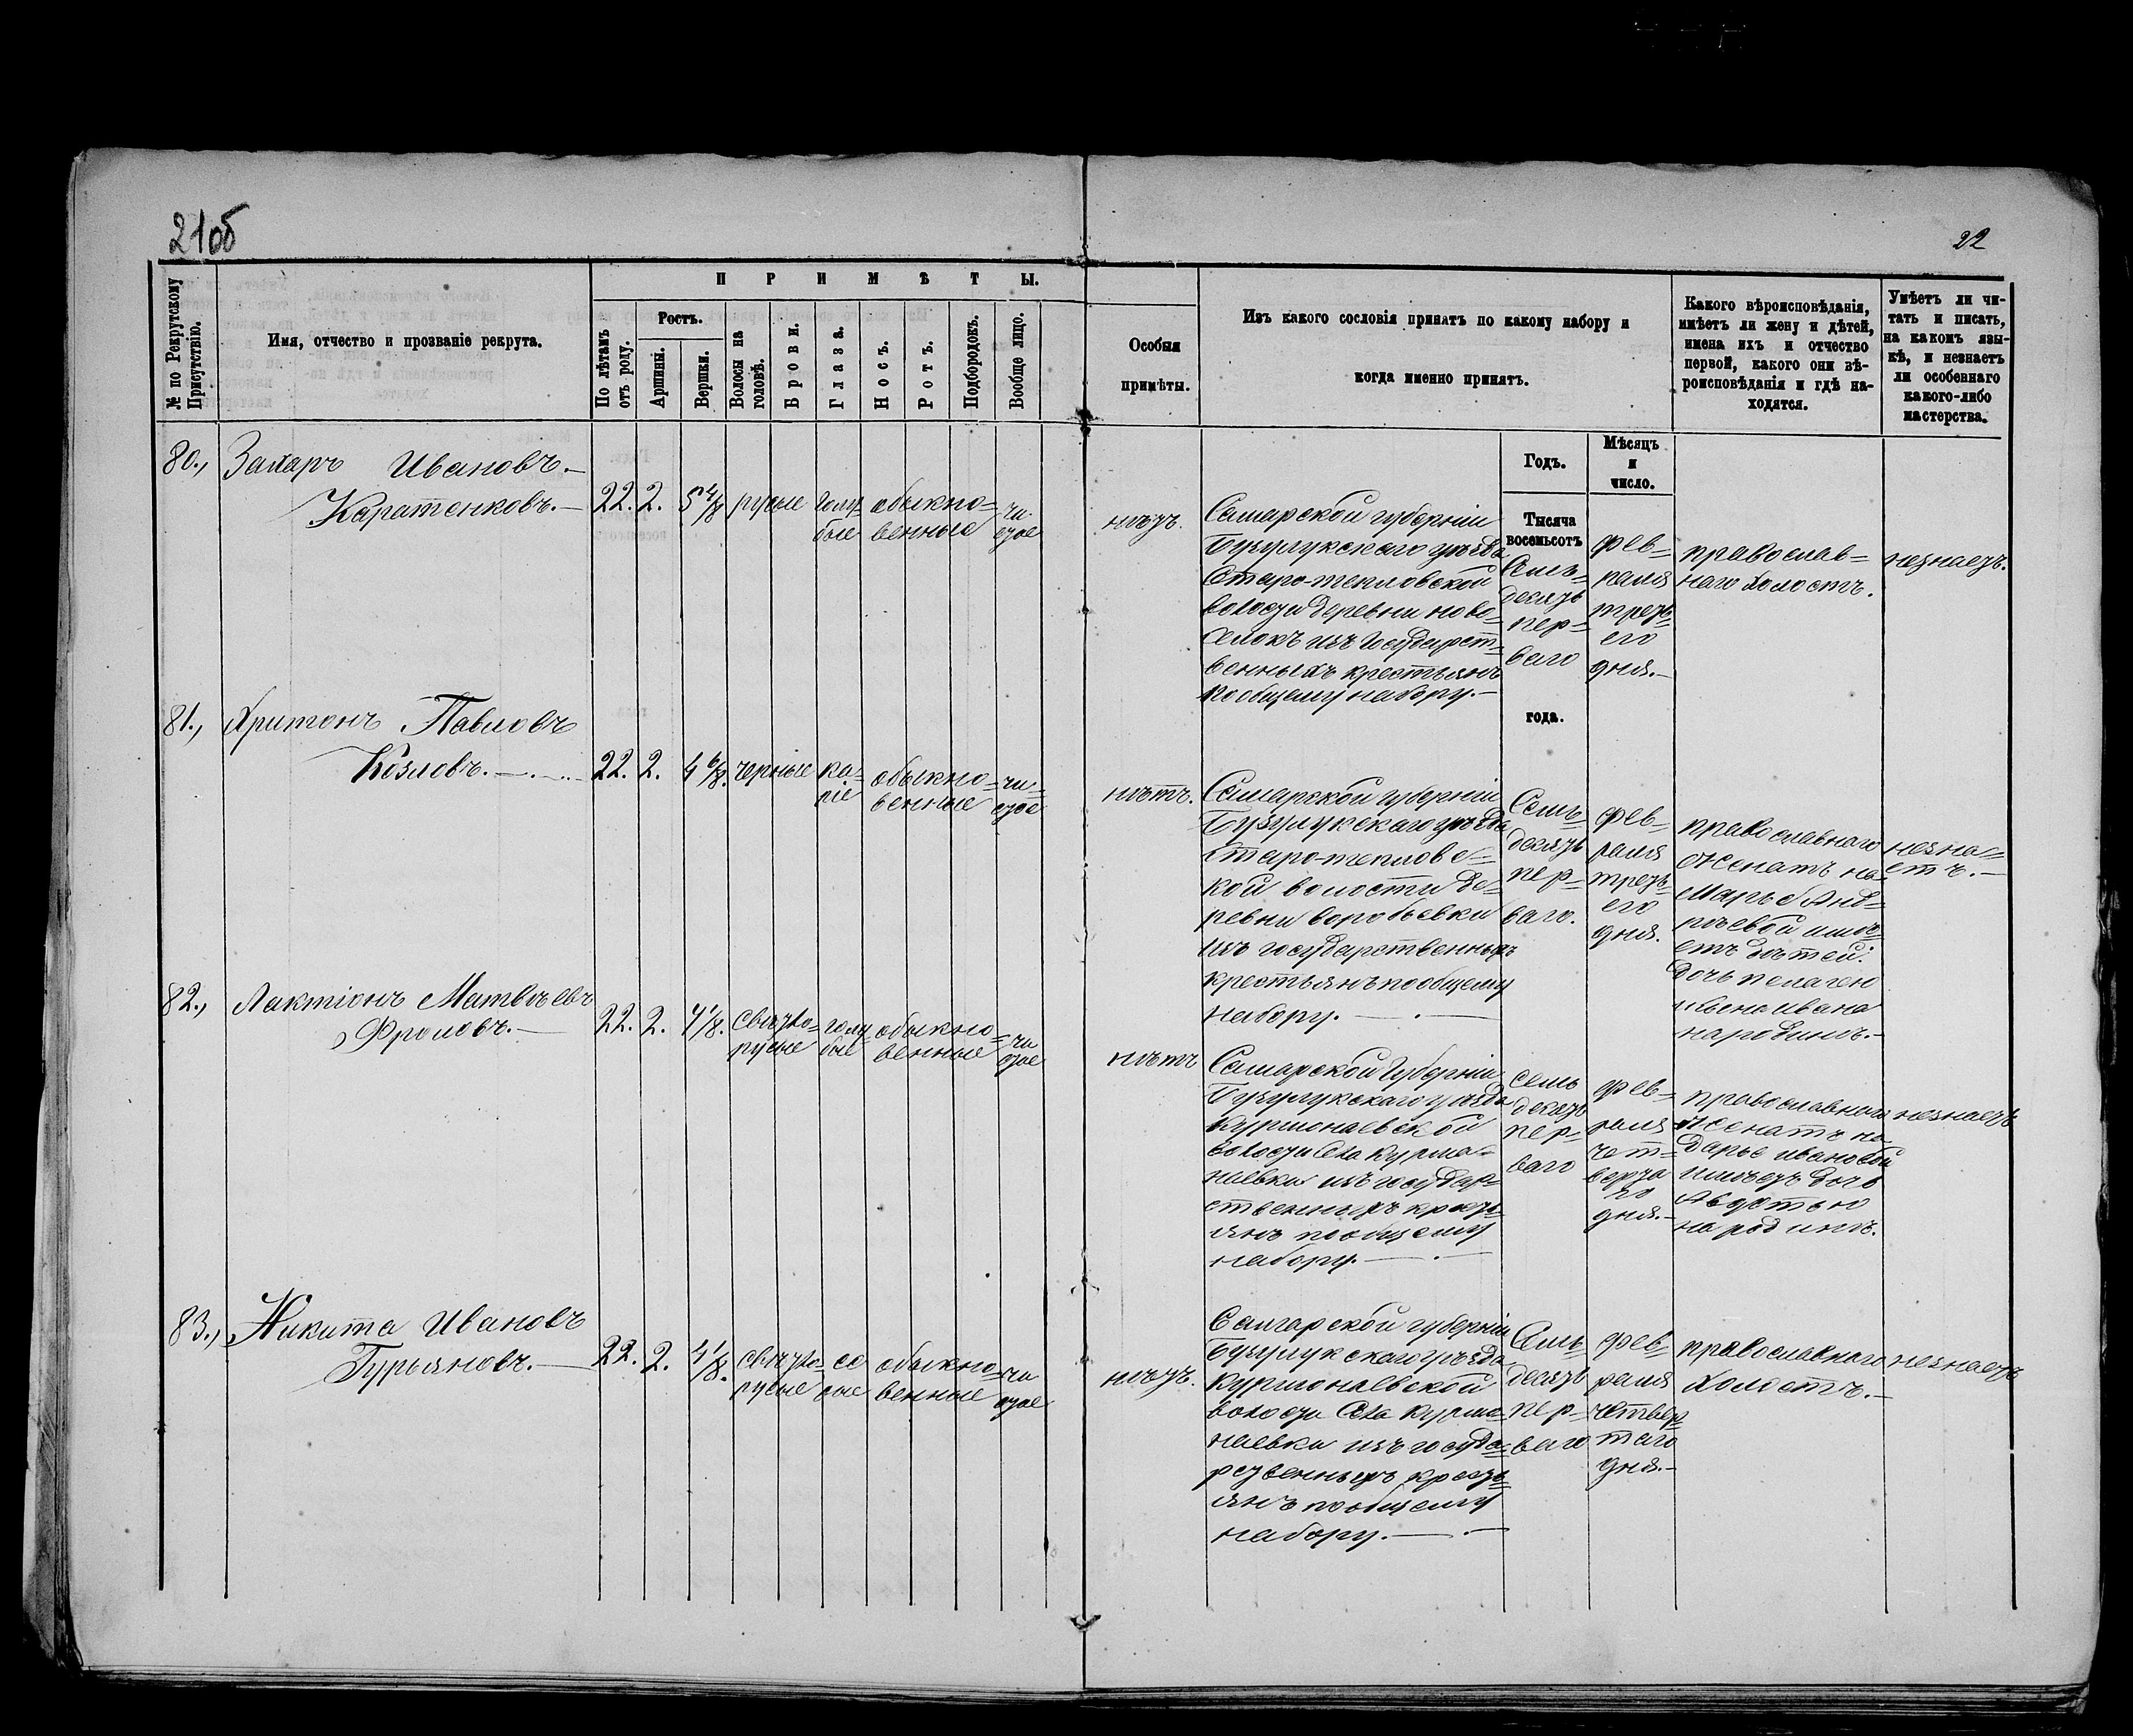 21об
22
№ по Рекрутскому Присутствію.
Имя, отчество и прозваніе рекрута.
ПРИМѢТЫ.
По лѣтамъ отъ роду.
Ростъ.
Аршины.
Вершки.
Волосы на головѣ.
Брови.
Глаза.
Носъ.
Ротъ.
Подбородокъ.
Вообще лицо.
Особыя
примѣты.
Изъ какого сословія принятъ по какому набору и
когда именно принятъ.
Какого вѣроисповѣданія,
имѣетъ ли жену и дѣтей,
имена ихъ и отчество
первой, какого они вѣ-
роисповѣданія и гдѣ на-
ходятся.
Умѣетъ ли чи-
тать и писать,
на какомъ язы-
кѣ, и незнаетъ
ли особеннаго
какого-либо
мастерства.
Годъ.
Мѣсяцъ
и
число.
Тысяча
восемьсотъ
года.
80., Захаръ Ивановъ.—
Каратенковъ.—
22. 2. 5 4/8
русые
голу=
бые
обыкно=
венные
чи-
стое
нѣтъ.
Самарской губерніи
Бузулукскаго уѣзда
Старо-тепловской
волости деревни ново-
селокъ изъ Государст-
венныхъ крестьянъ
по общему набору.—
Семь=
десятъ
пер=
ваго
фев=
раля
треть-
его
дня.—
православ=
наго холостъ.
незнаетъ.
81., Хритонъ Павловъ
Козловъ.—
22. 2. 4 6/8.
черные
ка-
ріе
обыкно=
венные
чи=
стое
нѣтъ.
Самарской губерніи
Бузулукскаго уѣзда
Старо-тепловс=
кой волости де-
ревни воробьевки
изъ государственныхъ
крестьянъ по общему
набору.—
Семь=
десятъ
пер=
ваго.
фев=
раля
треть-
его
дня.
православнаго
женатъ на
Марье Анд=
рѣевой имѣ-
етъ дѣтей:
дочь пелагею
и сына ивана
народинѣ.—
незна=
етъ.—
82., Лактіонъ Матвѣевъ
Фроловъ.—
22. 2. 4 1/8.
свѣтло-
русые
голу
бые
обыкно=
венные
чи
стое
нѣтъ
Самарской Губерніи
Бузулукскаго уѣзда
Курманаевской
волости Села Курма=
наевки изъ государ-
ственныхъ кресть-
янъ по общему
набору.—
семь
десятъ
пер-
ваго
фев=
раля
чет=
верта
го
дня.—
православнаго
женатъ на
Дарье ивановой
имѣетъ дочь
Авдотью
на родинѣ.
незнаетъ
83., Никита Ивановъ
Гурьяновъ.—
22. 2. 4 1/8.
свѣтло-
русые
се
рые
обыкно=
венные
чи
стое
нѣтъ.
Самарской губерніи
Бузулукскаго уѣзда
Курманаевской
волости Села Курма-
наевки изъ госуда-
рственныхъ кресть-
янъ по общему
набору.—
Семь-
десятъ
пер-
ваго
фев-
раля
четвер-
таго
дня.—
православнаго
холостъ.—
незнаетъ